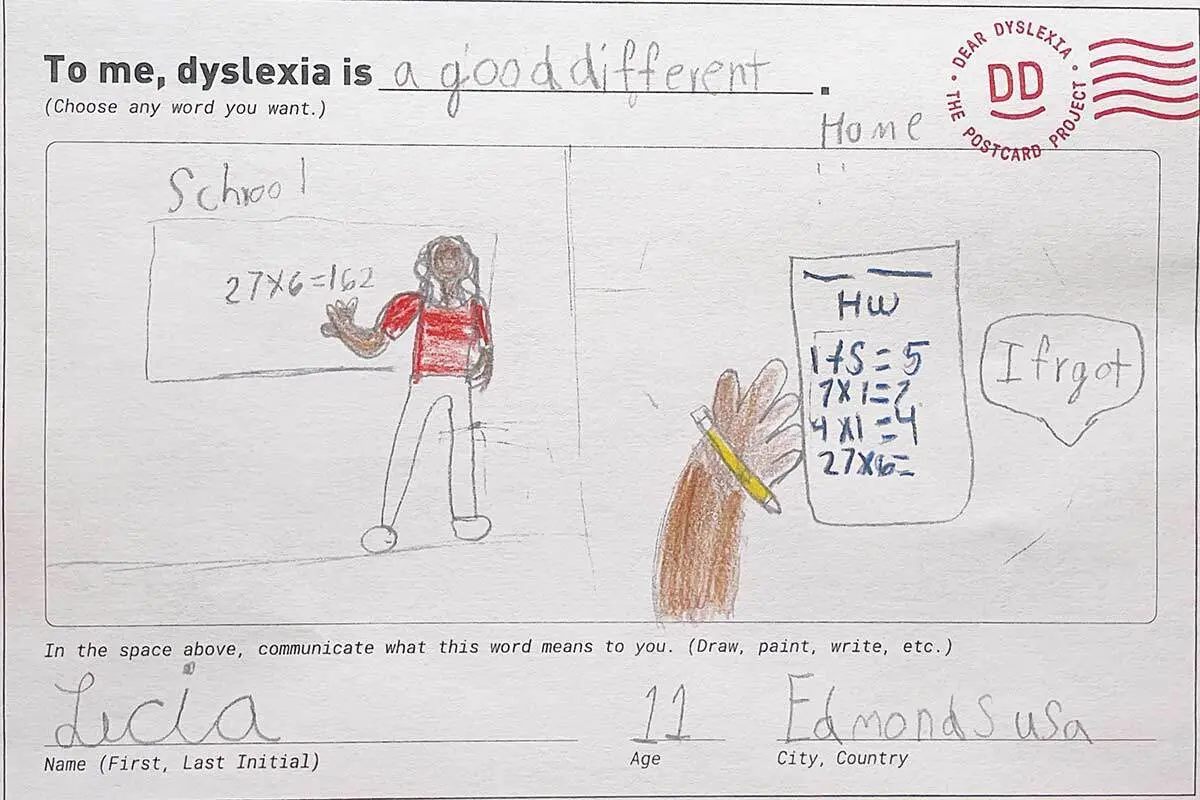 To me, dyslexia is a good different.
(Choose any word you want.)
DEAR DYSLEXIA • THE POSTCARD PROJECT •
DD
School
27x6=162
Home
HW
1+5=5
7x1=7
4x1=4
27x6=
I frgot
In the space above, communicate what this word means to you. (Draw, paint, write, etc.)
Lucia
11
Edmonds usa
Name (First, Last Initial)
Age
City, Country